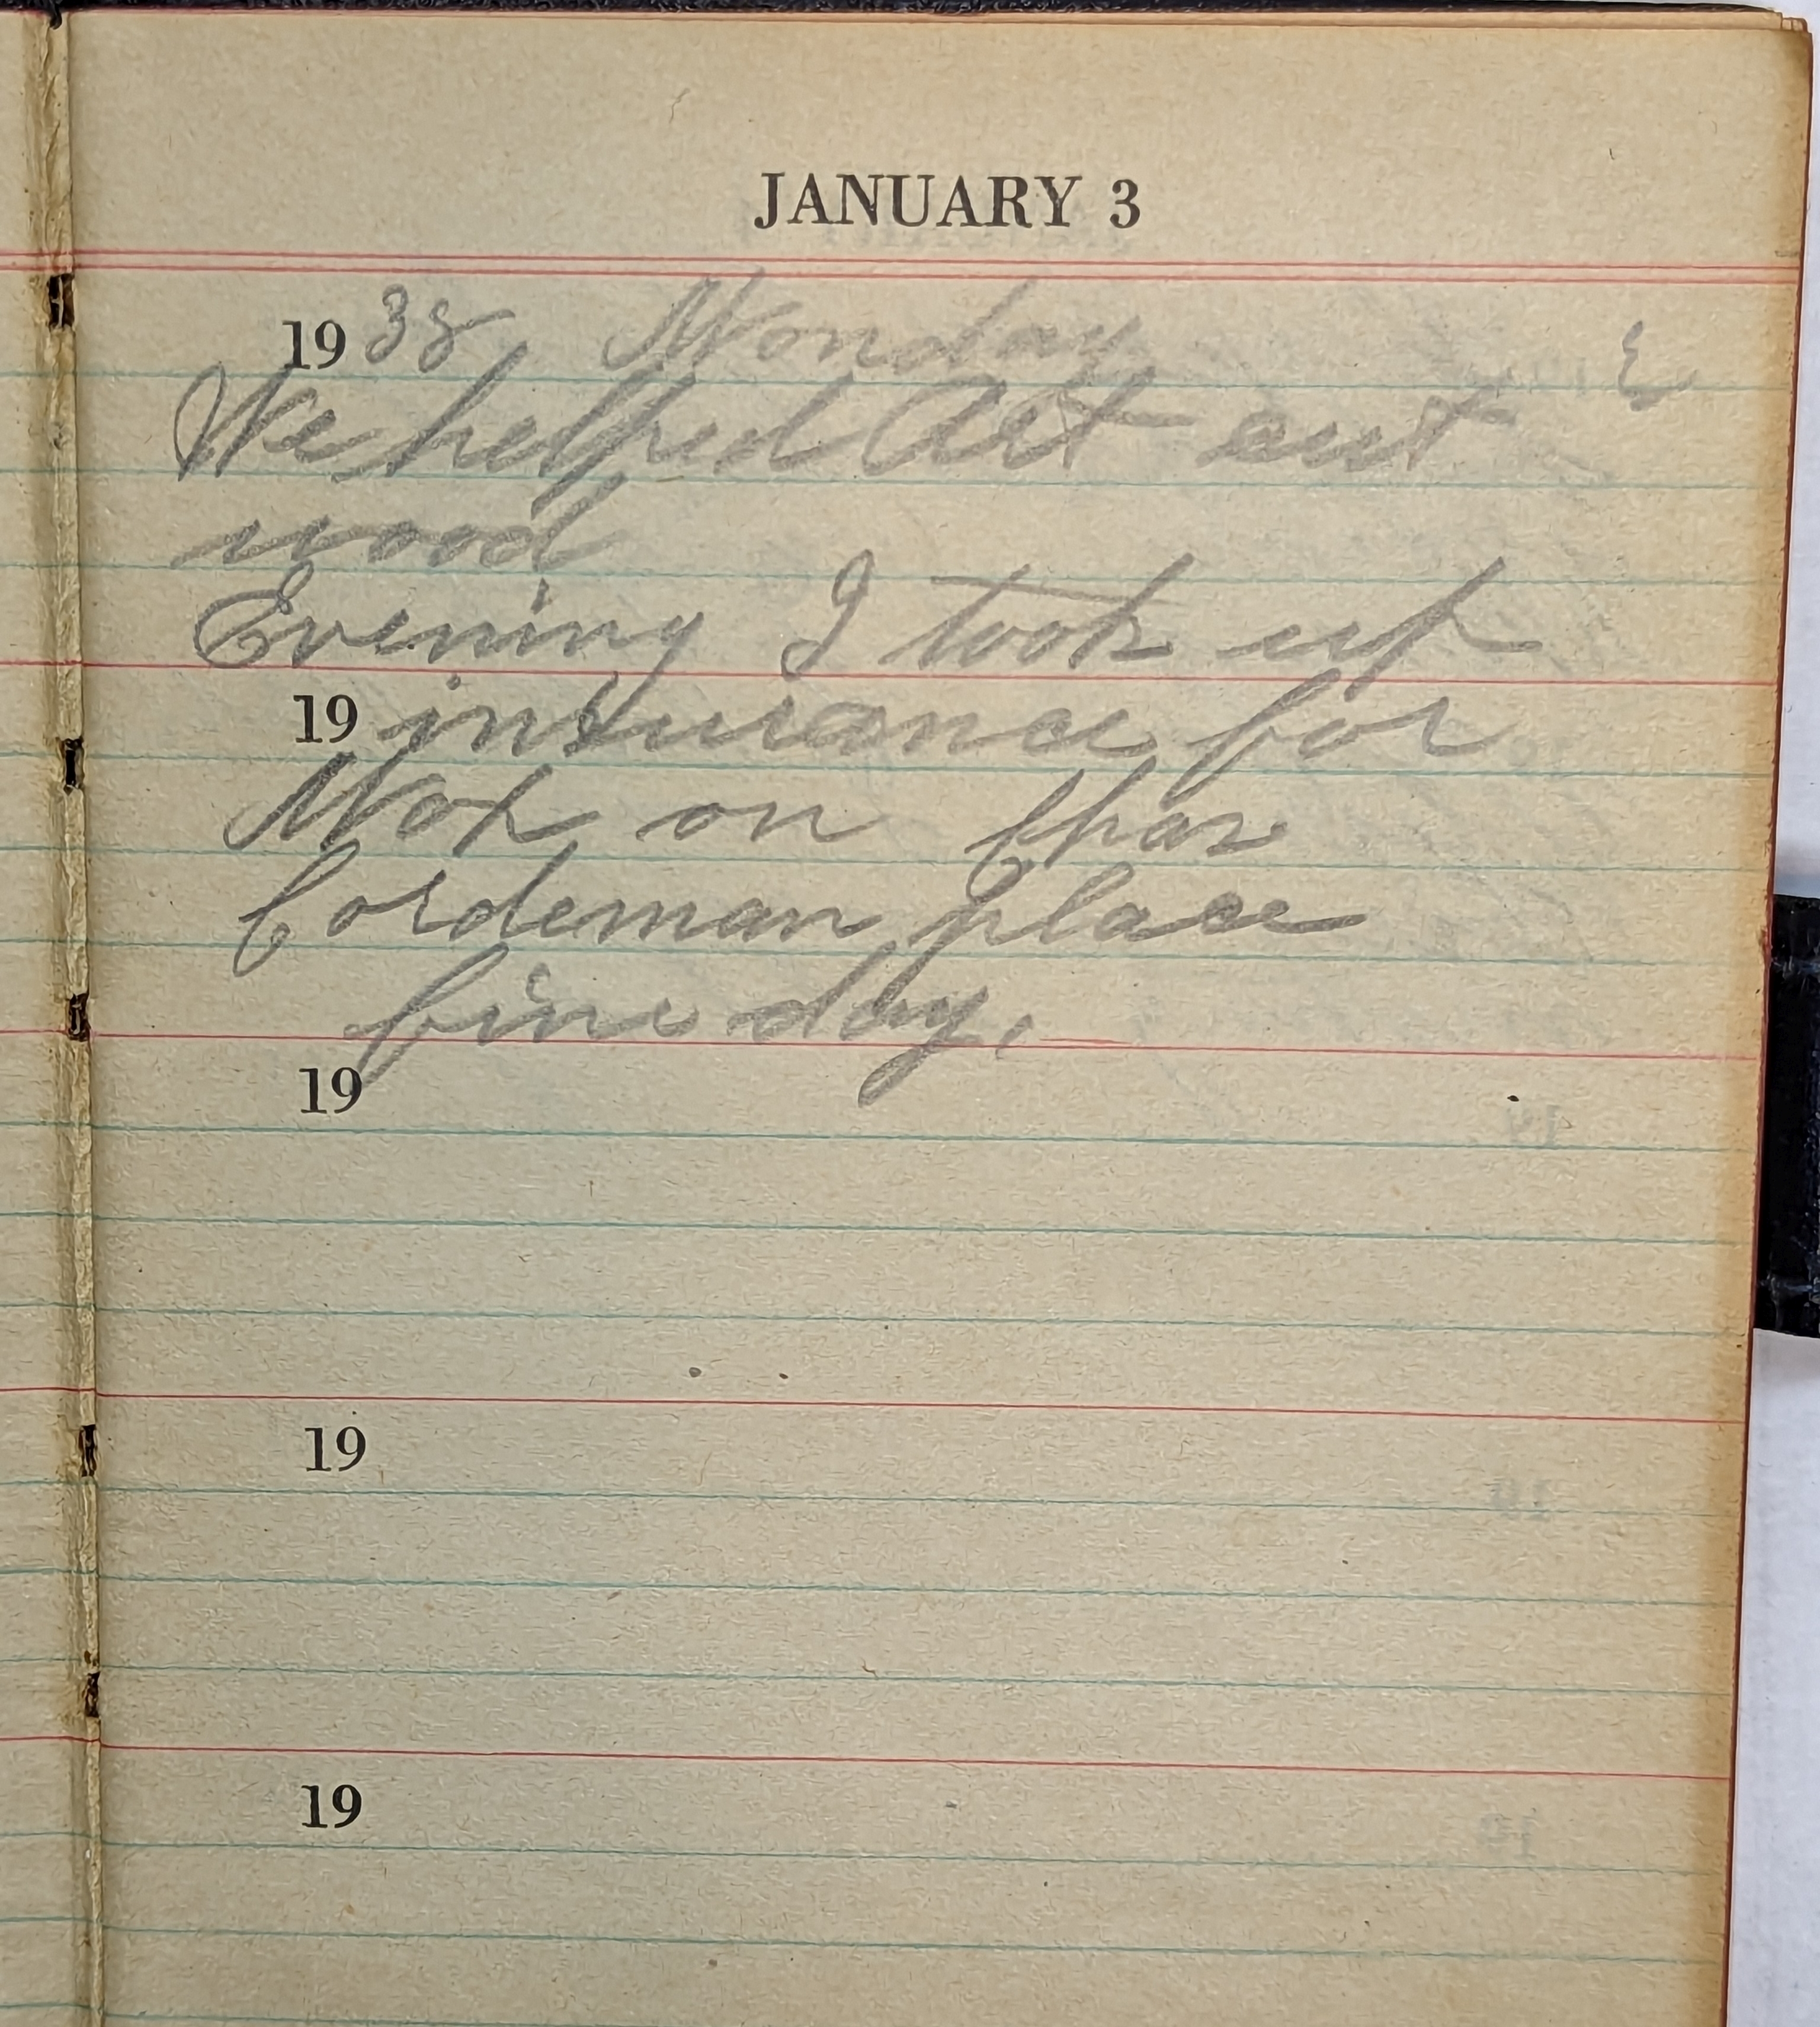 JANUARY 3
1938 Monday
We helped Art cut
wood
Evening I took up
19 insurance for
Max on Chas
Cordeman place
fine day.
19
19
19